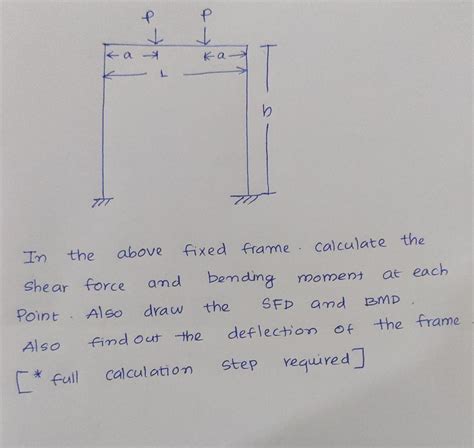 P P
a a
L
b
In the above fixed frame. calculate the
shear force and bending moment at each
Point. Also draw the SFD and BMD.
Also find out the deflection of the frame
[* full calculation step required]